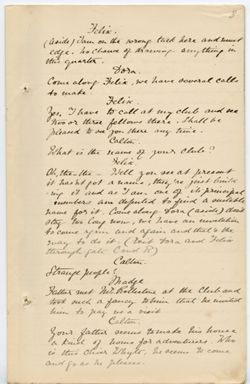 3
Felix.
(Aside) I am on the wrong tack here and must
edge. No chance of drawing anything in
this quarter.
Dora.
Come along Felix, we have several calls
to make
Felix.
Yes, I have to call at my club and see
two or three fellows there. Shall be
pleased to see you there any time.
Calton.
What is the name of your club?
Felix
Oh, the - the - Well you see at present
it hasn't got a name, they're just build-
ing it and as I am one of its principal
members am deputed to find a suitable
name for it. Come along Dora (aside) don't
stay too long now, we have an invitation
to come again and again and that's the
way to do it. (Exit Dora and Felix
through gate C and R)
Calton.
Strange people!
Madge
Father met Mr. Rolleston at the Club and
took such a fancy to him that he invited
him to pay us a visit
Calton.
Your father seems to make his house
a kind of home for adventurers. Who
is this Oliver Whyte, he seems to come
and go as he pleases.